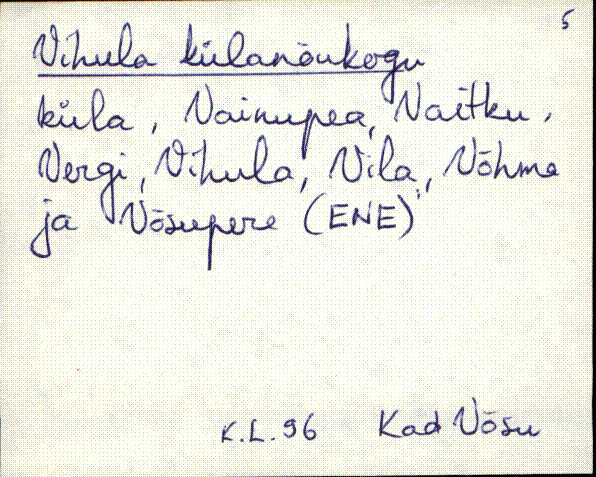 5
Vihula külanõukogu
küla, Vainupea, Vaitku,
Vergi, Vihula, Vila, Võhma
ja Võsupere (ENE)
K.L.96 Kad Võsu